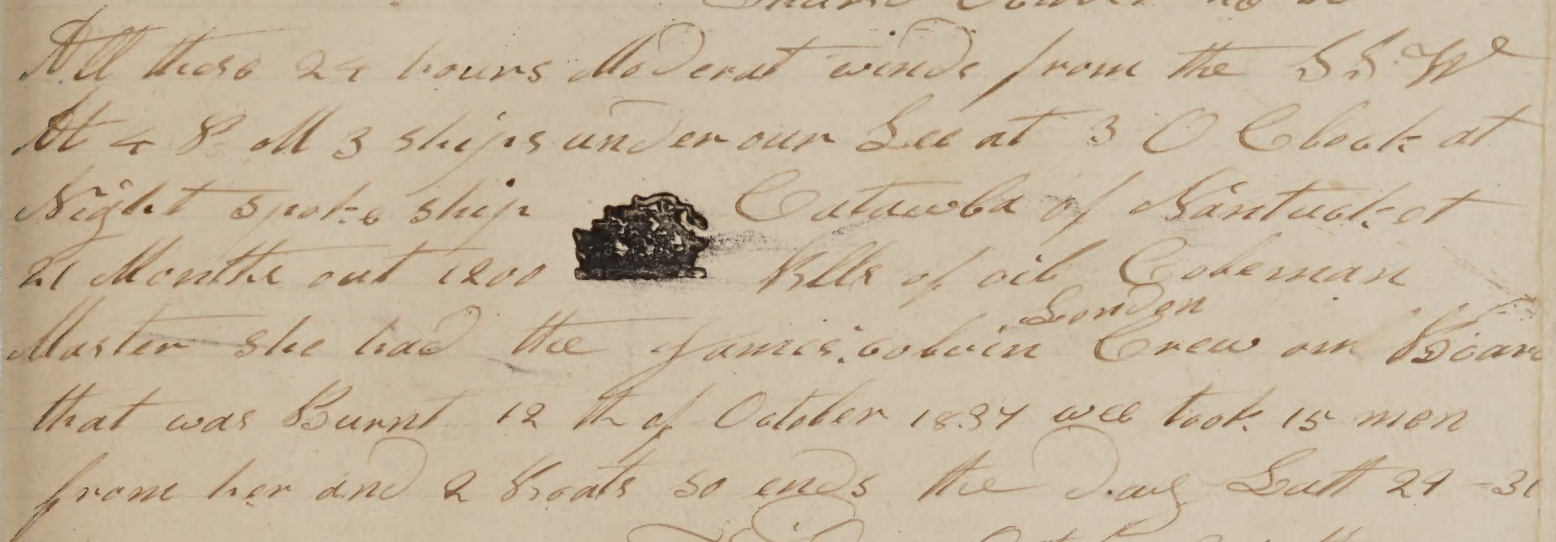 All these 24 hours Moderat winds from the S S W
At 4 P M 3 ships under our Lee at 3 O Clock at
Night spoke ship Catawba of Nantucket
21 Months out 1200 Blls of oil Coleman
London
Master she had the James colvin Crew on Board
that was Burnt 12 th of October 1837 wee took 15 men
from her and 2 Boats so ends the Day Latt 29 - 31